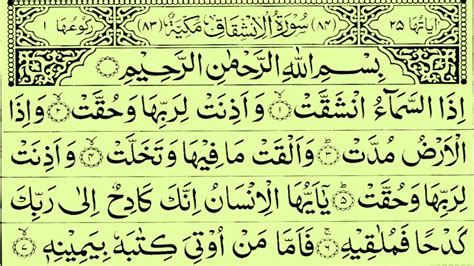 اٰيَاتُهَا ٢٥ (٨٤) سُوْرَةُ الْاِنْشِقَاقِ مَكِّيَّةٌ (٨٣) رُكُوْعُهَا ١
بِسْمِ اللّٰهِ الرَّحْمٰنِ الرَّحِيْمِ
اِذَا السَّمَآءُ انْشَقَّتْ ۙ﴿۱﴾ وَاَذِنَتْ لِرَبِّهَا وَحُقَّتْ ۙ﴿۲﴾ وَاِذَا
الْاَرْضُ مُدَّتْ ۙ﴿۳﴾ وَاَلْقَتْ مَا فِيْهَا وَتَخَلَّتْ ۙ﴿۴﴾ وَاَذِنَتْ
لِرَبِّهَا وَحُقَّتْ ؕ﴿۵﴾ يٰۤاَيُّهَا الْاِنْسَانُ اِنَّكَ كَادِحٌ اِلٰى رَبِّكَ
كَدْحًا فَمُلٰقِيْهِ ۚ﴿۶﴾ فَاَمَّا مَنْ اُوْتِىَ كِتٰبَهٗ بِيَمِيْنِهٖ ۙ﴿۷﴾